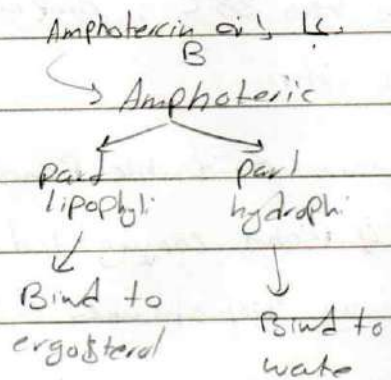 Amphotercin
B
Amphoteric
part part
lipophyli hydrophi
Bind to
ergosterol
Bind to
wate